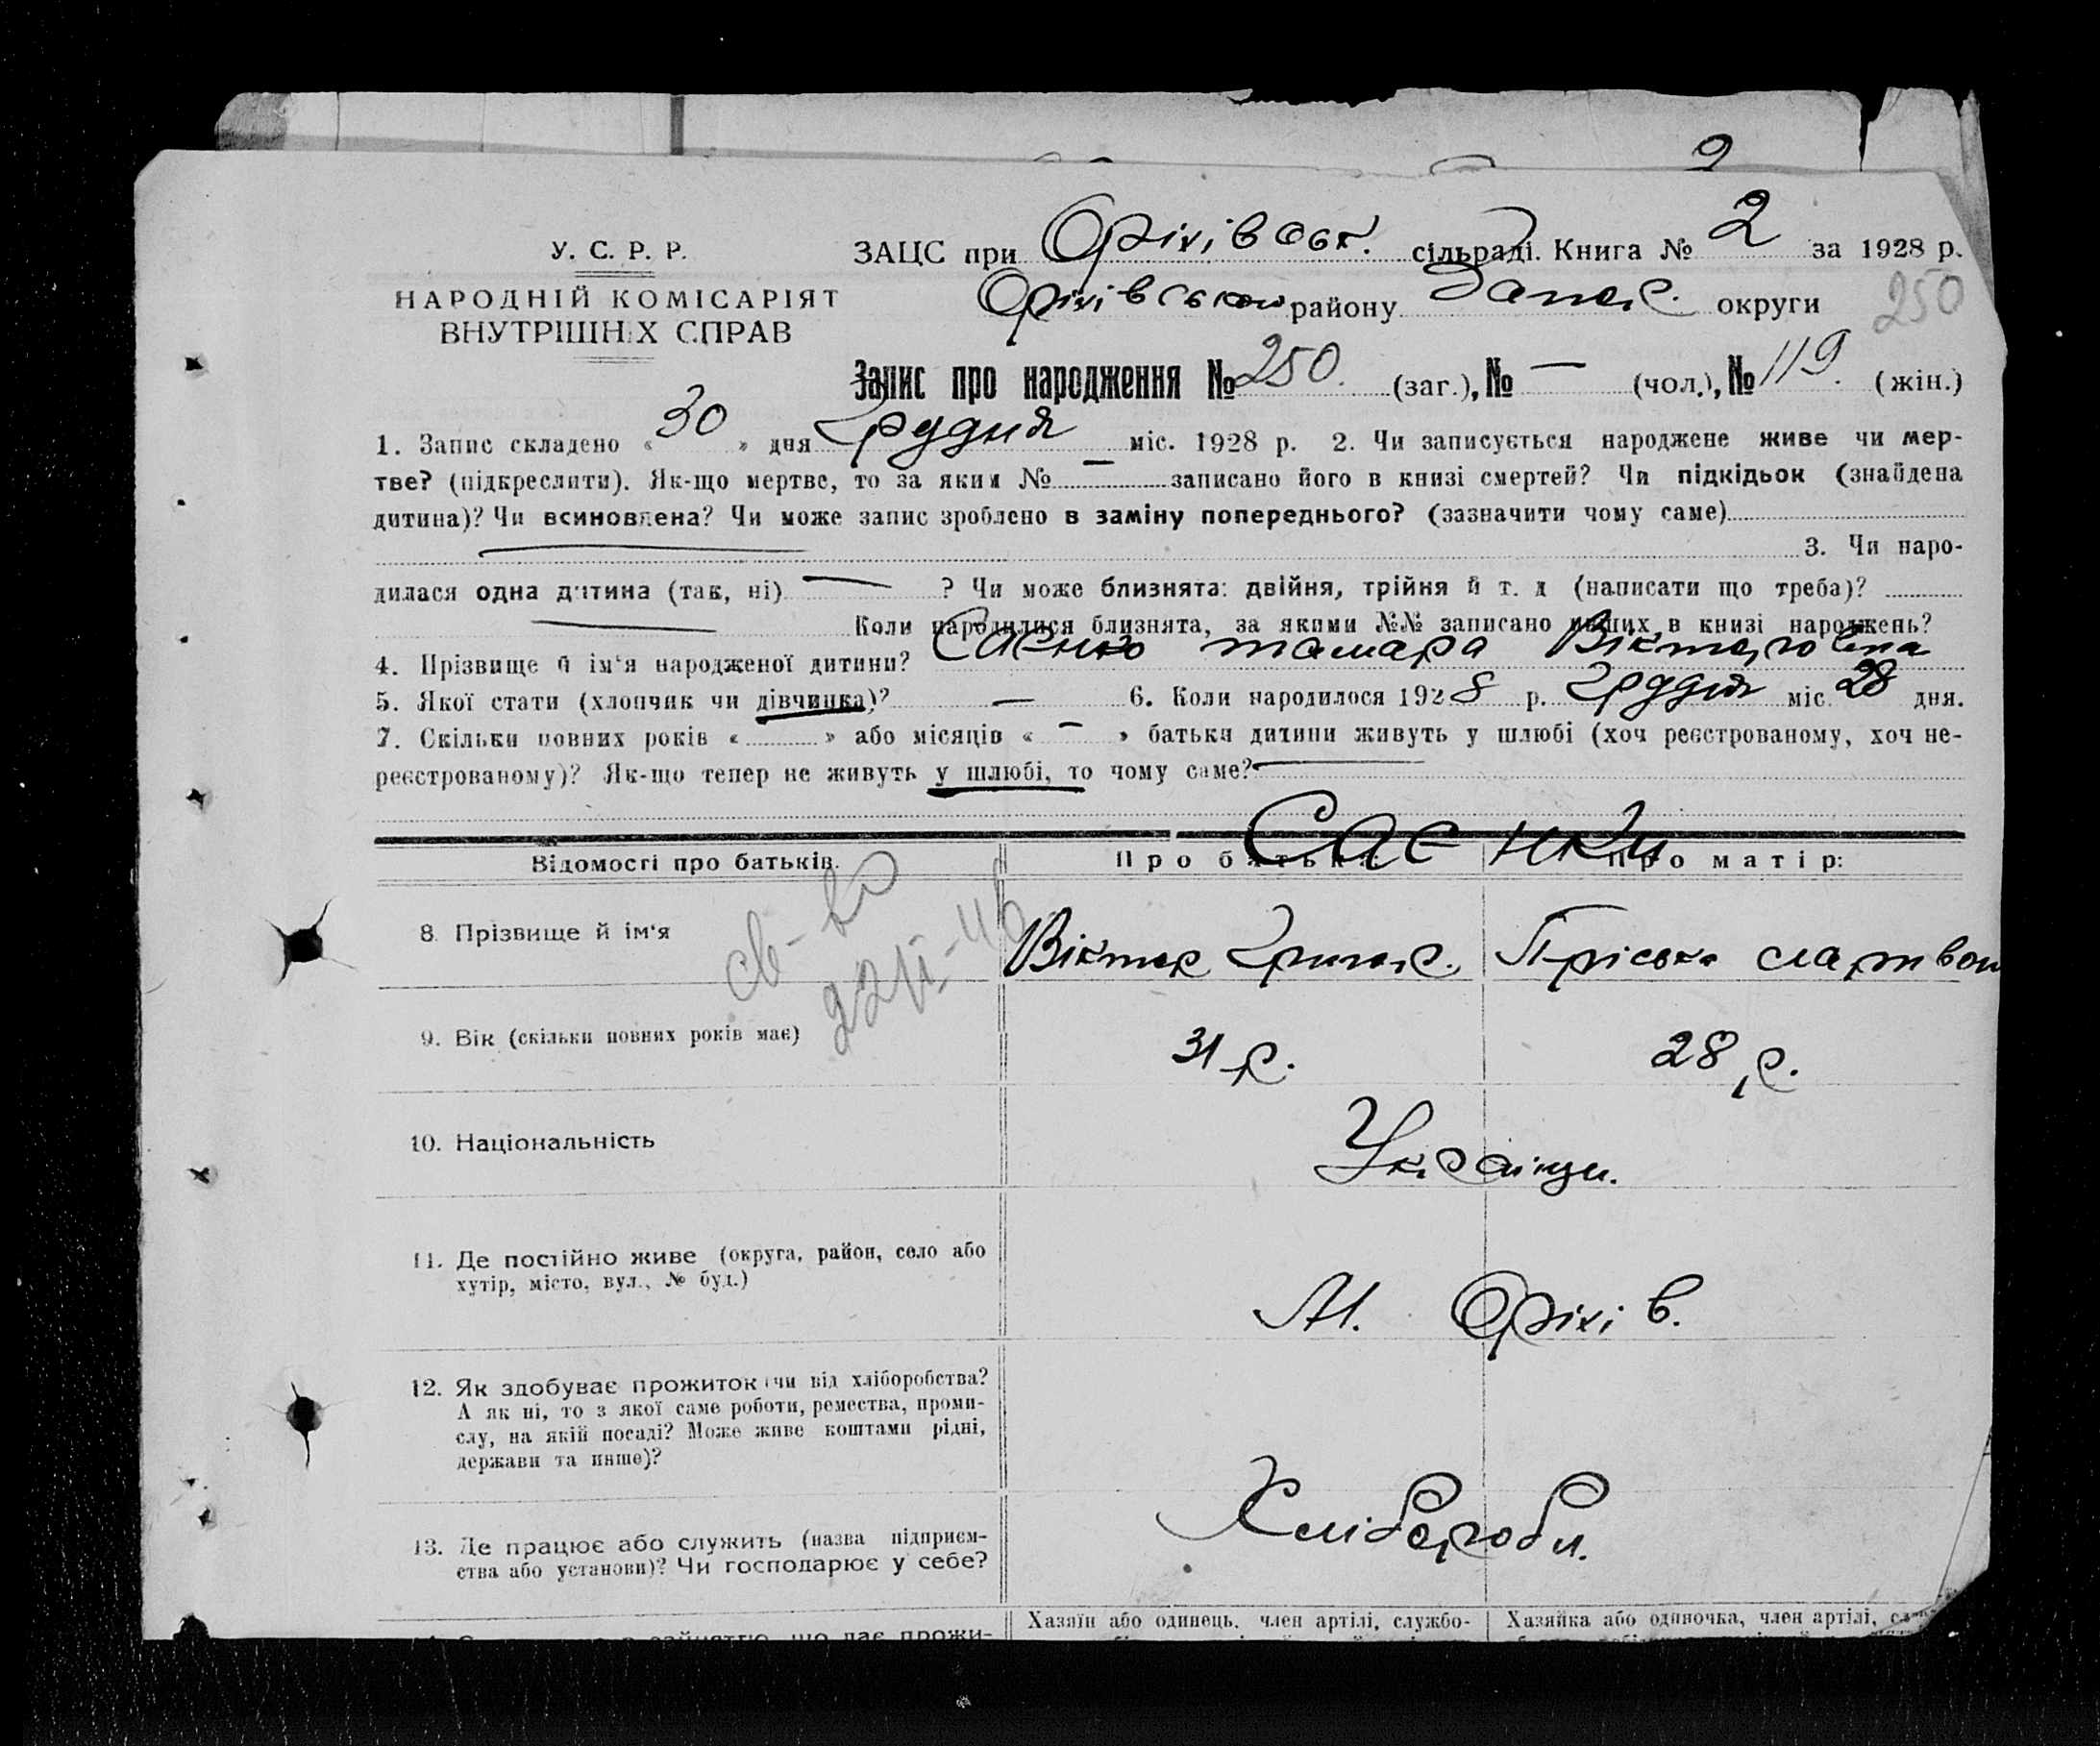 2
У. С. Р. Р.
НАРОДНІЙ КОМІСАРІЯТ
ВНУТРІШНІХ СПРАВ
ЗАЦС при Оріхівськ. сільраді. Книга № 2 за 1928 р.
Оріхівського району Запор. округи
250
Запис про народження № 250. (заг.), № — (чол.), № 119. (жін.)
1. Запис складено « 30 » дня Грудня міс. 1928 р. 2. Чи записується народжене живе чи мер-
тве? (підкреслити). Як-що мертве, то за яким № — записано його в книзі смертей? Чи підкідьок (знайдена
дитина)? Чи всиновлена? Чи може запис зроблено в заміну попереднього? (зазначити чому саме)
— 3. Чи наро-
дилася одна дитина (так, ні) — ? Чи може близнята: двійня, трійня й т. д (написати що треба)?
— Коли народилися близнята, за якими №№ записано инших в книзі народжень?
4. Прізвище й ім'я народженої дитини? Саєнко Тамара Вікторовна
5. Якої стати (хлопчик чи дівчинка)? — 6. Коли народилося 1928 р. Грудня міс. 28 дня.
7. Скільки повних років « » або місяців « — » батьки дитини живуть у шлюбі (хоч реєстрованому, хоч не-
реєстрованому)? Як-що тепер не живуть у шлюбі, то чому саме? —
Відомості про батьків. Про батька: Про матір:
Саєнки
8. Прізвище й ім'я Віктор Григор. Пріська
св-во
9. Вік (скільки повних років має) 31 р. 28 р.
10. Національність Українци.
11. Де постійно живе (округа, район, село або
хутір, місто, вул., № буд.)
М. Оріхів.
12. Як здобуває прожиток (чи від хліборобства?
А як ні, то з якої саме роботи, ремества, проми-
слу, на якій посаді? Може живе коштами рідні,
держави та инше)?
Хлібороби.
13. Де працює або служить (назва підприєм-
ства або установи)? Чи господарює у себе?
Хазяїн або одинець, член артілі, службо- Хазяйка або одиночка, член артілі,
що дає прожи-